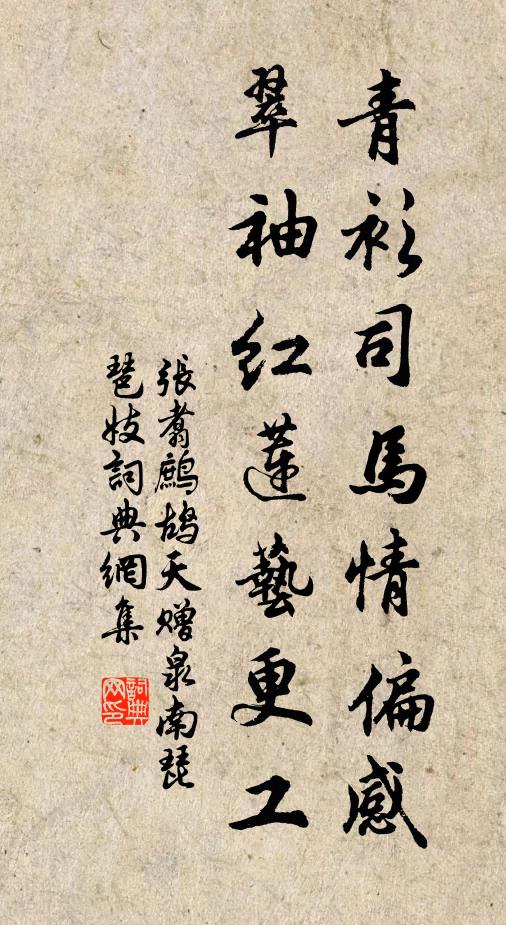 青衫司馬情偏感
翠袖紅蓮藝更工
張翥鷓鴣天贈泉南琵
琶妓詞典網集
詞典
网印